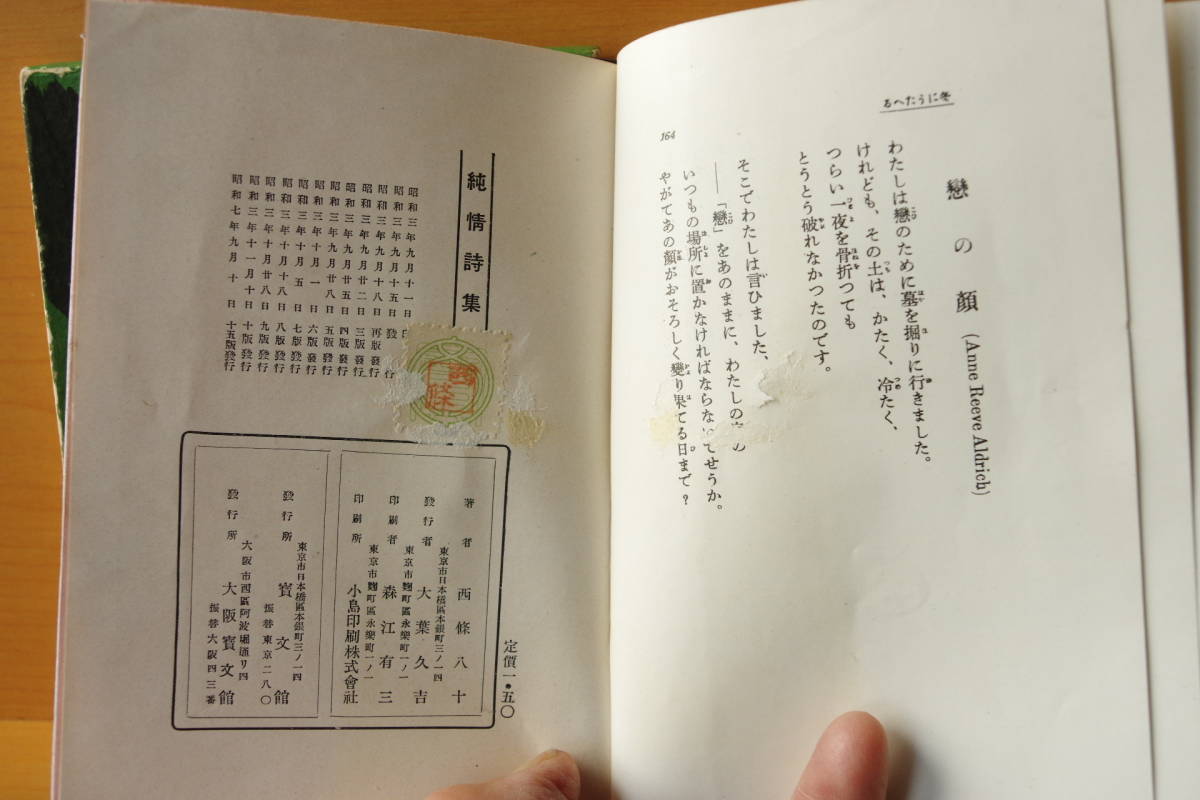 冬にうたへる
戀の顔 (Anne Reeve Aldrich)
わたしは戀のために墓を掘りに行きました。
けれども、その土は、かたく、冷たく、
つらい一夜を骨折つても
とうとう破れなかつたのです。
そこでわたしは言ひました、
――「戀」をあのままに、わたしの
いつもの場所に置かなければならないでせうか。
やがてあの顔がおそろしく變り果てる日まで?
164
純情詩集
昭和三年九月十一日印
昭和三年九月十五日發行
昭和三年九月十八日再版發行
昭和三年九月廿二日三版發行
昭和三年九月廿五日四版發行
昭和三年九月廿八日五版發行
昭和三年十月一日六版發行
昭和三年十月五日七版發行
昭和三年十月十八日八版發行
昭和三年十月廿八日九版發行
昭和三年十一月十日十版發行
昭和七年九月十日十五版發行
西條
定價一・五〇
著者 西條八十
東京市日本橋區本銀町三ノ一四
發行者 大葉久吉
東京市麴町區永樂町一ノ一
印刷者 森江有三
東京市麴町區永樂町一ノ一
印刷所 小島印刷株式會社
東京市日本橋區本銀町三ノ一四
發行所 寶文館
振替東京二八〇
大阪市西區阿波堀通リ四
發行所 大阪寶文館
振替大阪四三番